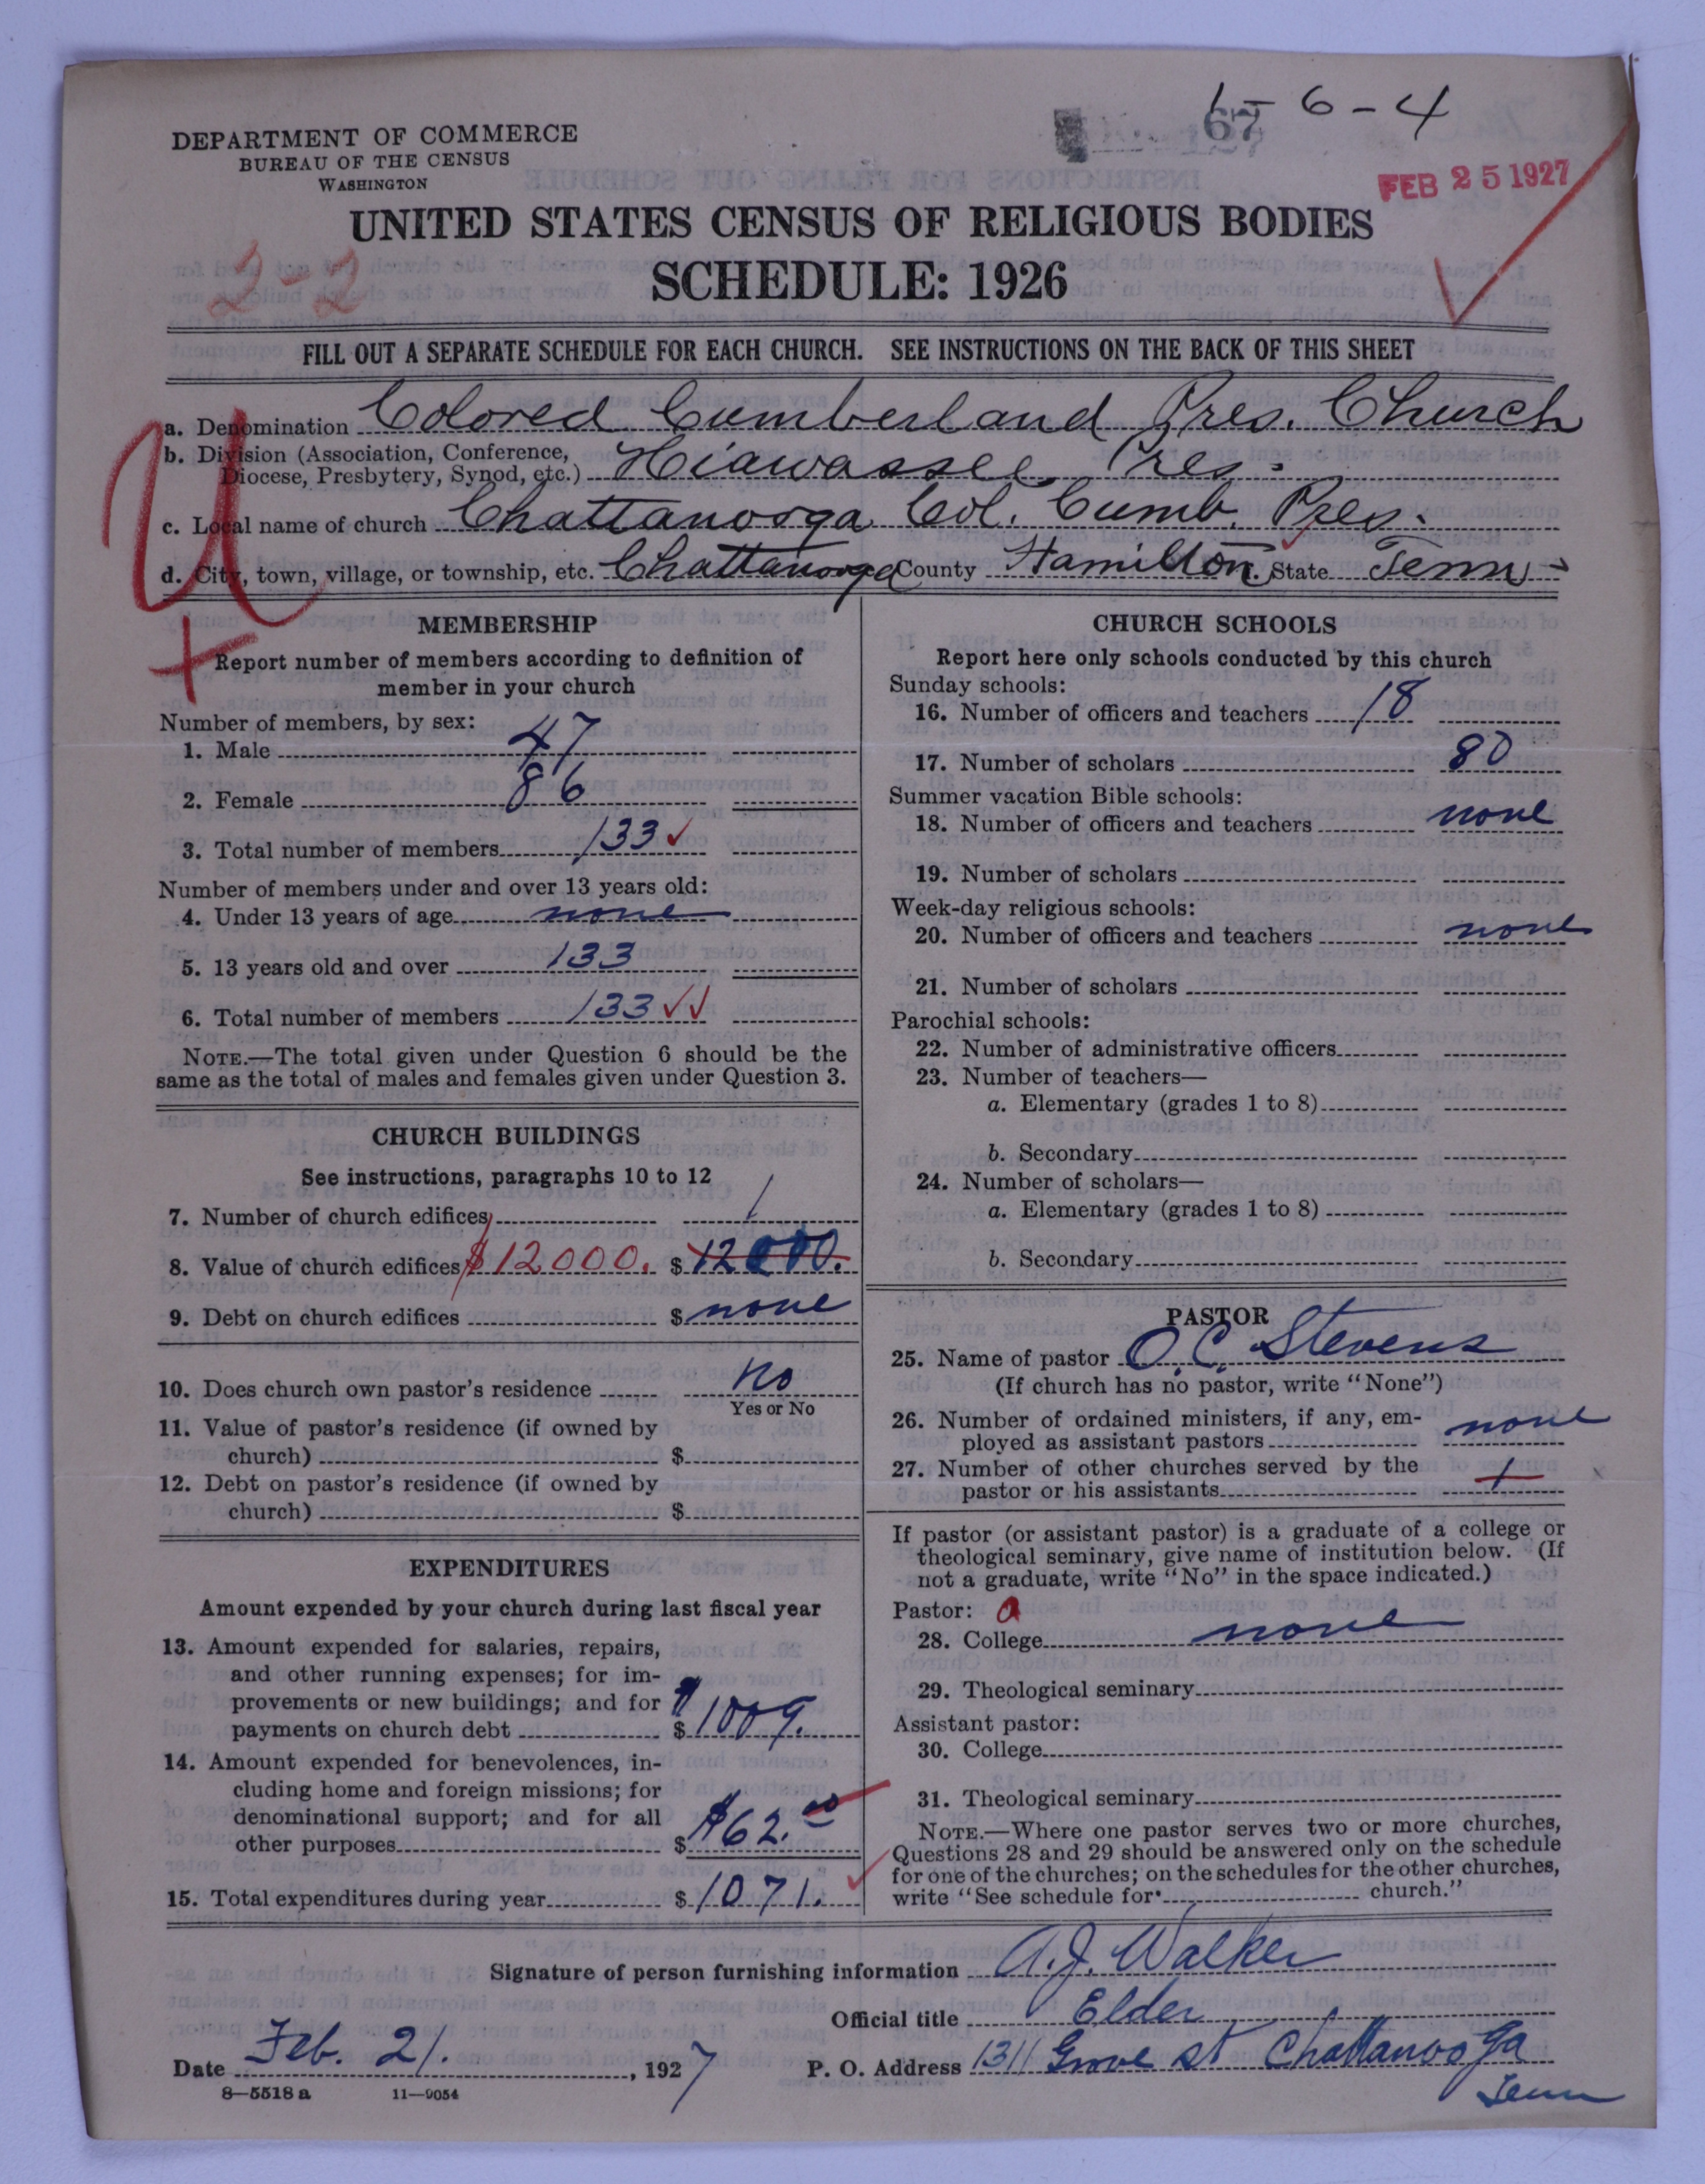 1-6-4
67
FEB 25 1927
DEPARTMENT OF COMMERCE
BUREAU OF THE CENSUS
WASHINGTON
UNITED STATES CENSUS OF RELIGIOUS BODIES
SCHEDULE: 1926
2-2
FILL OUT A SEPARATE SCHEDULE FOR EACH CHURCH. SEE INSTRUCTIONS ON THE BACK OF THIS SHEET
U
a. Denomination Colored Cumberland Pres. Church
b. Division (Association, Conference,
Diocese, Presbytery, Synod, etc.) Hiawassee Pres.
c. Local name of church Chattanooga Col. Cumb. Pres.
d. City, town, village, or township, etc. Chattanooga County Hamilton. State Tenn
MEMBERSHIP
Report number of members according to definition of
member in your church
Number of members, by sex:
1. Male 47
2. Female 86
3. Total number of members 133
Number of members under and over 13 years old:
4. Under 13 years of age none
5. 13 years old and over 133
6. Total number of members 133
NOTE.—The total given under Question 6 should be the
same as the total of males and females given under Question 3.
CHURCH BUILDINGS
See instructions, paragraphs 10 to 12
7. Number of church edifices 1
8. Value of church edifices $12000. $12000.
9. Debt on church edifices $ none
10. Does church own pastor's residence No
Yes or No
11. Value of pastor's residence (if owned by
church) $
12. Debt on pastor's residence (if owned by
church) $
EXPENDITURES
Amount expended by your church during last fiscal year
13. Amount expended for salaries, repairs,
and other running expenses; for im-
provements or new buildings; and for
payments on church debt $ $1009.
14. Amount expended for benevolences, in-
cluding home and foreign missions; for
denominational support; and for all
other purposes $ $62.00
15. Total expenditures during year $ 1071.
CHURCH SCHOOLS
Report here only schools conducted by this church
Sunday schools:
16. Number of officers and teachers 18
17. Number of scholars 80
Summer vacation Bible schools:
18. Number of officers and teachers none
19. Number of scholars
Week-day religious schools:
20. Number of officers and teachers none
21. Number of scholars
Parochial schools:
22. Number of administrative officers
23. Number of teachers—
a. Elementary (grades 1 to 8)
b. Secondary
24. Number of scholars—
a. Elementary (grades 1 to 8)
b. Secondary
PASTOR
25. Name of pastor O. C. Stevens
(If church has no pastor, write "None")
26. Number of ordained ministers, if any, em-
ployed as assistant pastors none
27. Number of other churches served by the
pastor or his assistants 1
If pastor (or assistant pastor) is a graduate of a college or
theological seminary, give name of institution below. (If
not a graduate, write "No" in the space indicated.)
Pastor:
28. College none
29. Theological seminary
Assistant pastor:
30. College
31. Theological seminary
NOTE.—Where one pastor serves two or more churches,
Questions 28 and 29 should be answered only on the schedule
for one of the churches; on the schedules for the other churches,
write "See schedule for church."
Signature of person furnishing information A. J. Walker
Official title Elder
Date Feb. 21. , 1927 P. O. Address 1311 Grove st Chattanooga
Tenn
8—5518 a 11—9054